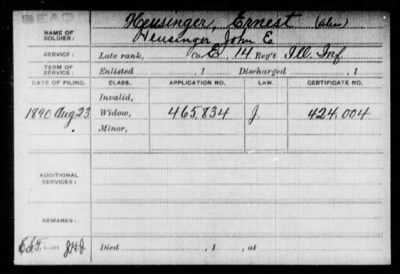 DEAD
NAME OF SOLDIER: Heusinger, Ernest (alias)
Heusinger John E.
SERVICE: Late rank, Co. E, 14 Reg't Ill. Inf
TERM OF SERVICE: Enlisted , 1 Discharged , 1
DATE OF FILING. CLASS. APPLICATION NO. LAW. CERTIFICATE NO.
Invalid,
1890 Aug. 23 Widow, 465.834 J. 424.004
Minor,
ADDITIONAL SERVICES:
REMARKS:
Died , 1 , at